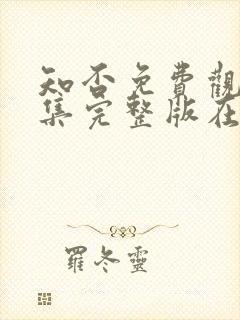 知否免費觀
集完整版在
羅冬靈